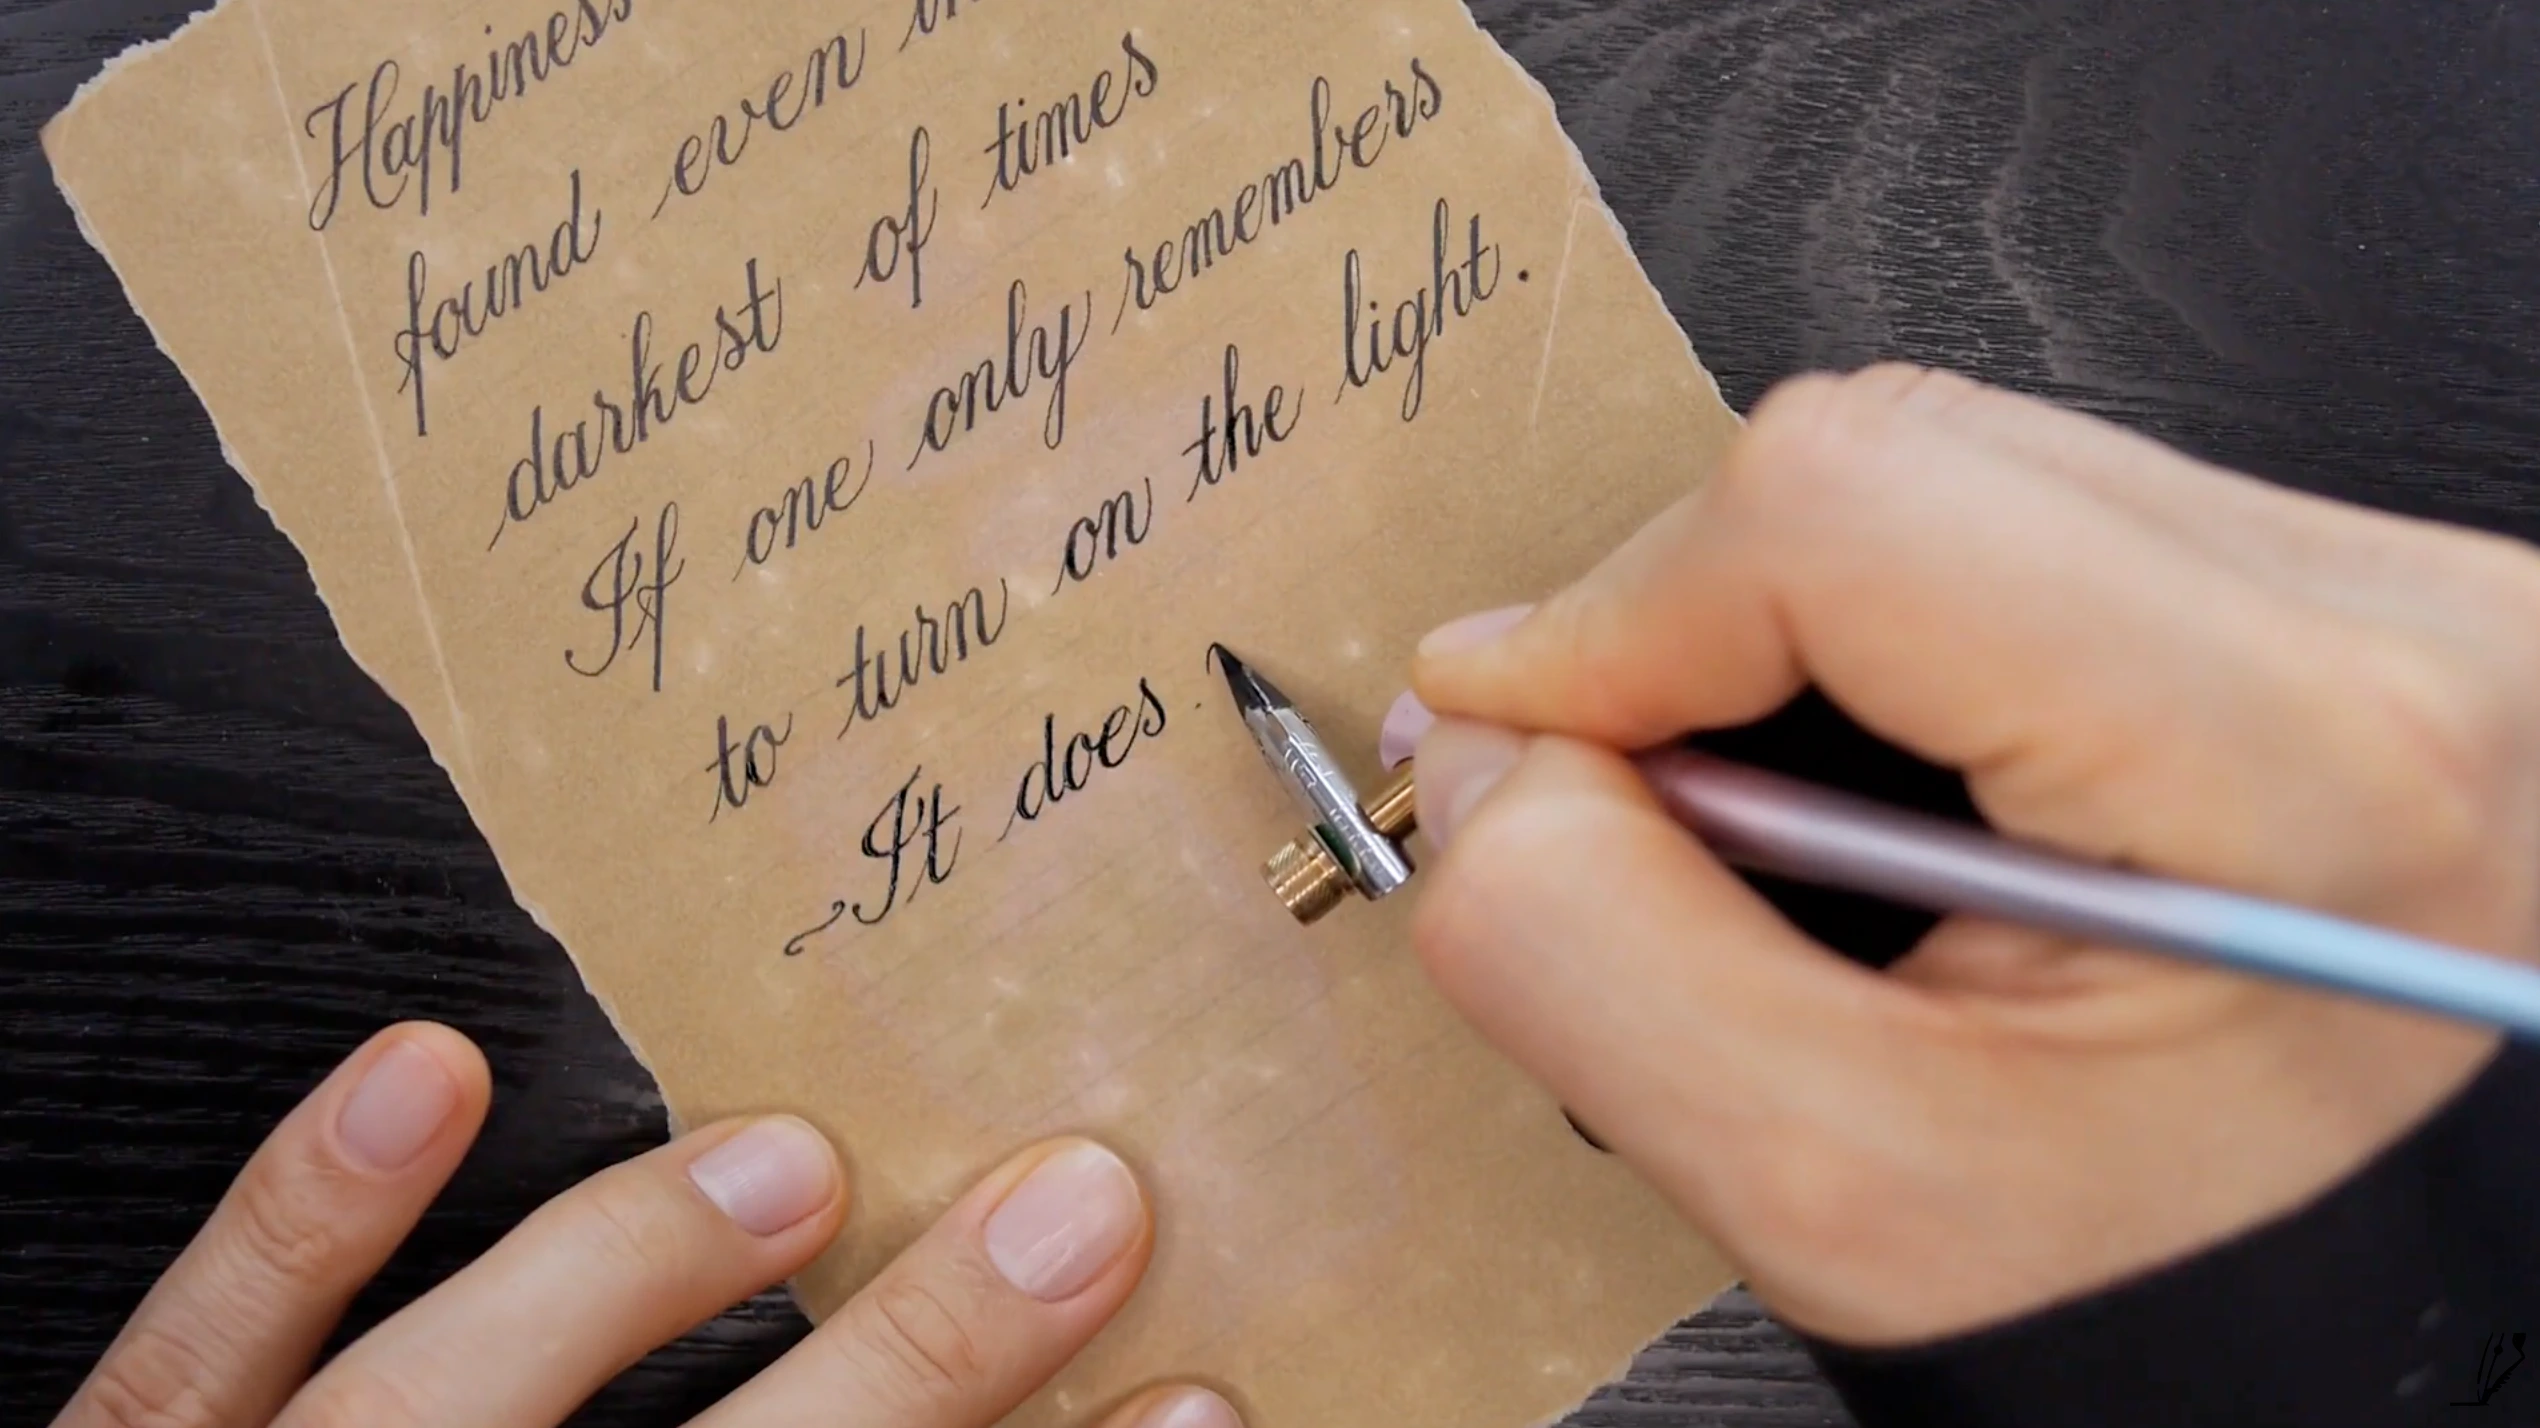 Happiness
found even
darkest of times
If one only remembers
to turn on the light.
It does